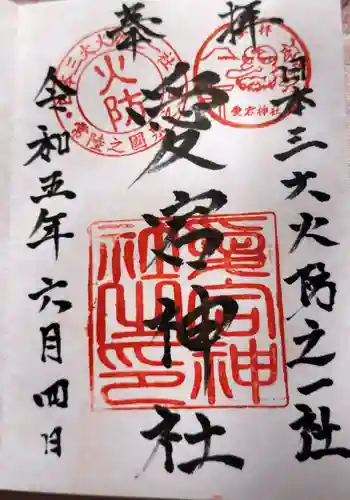 奉拝
日本三大火防之一社
愛宕神社
令和五年六月四日
火防
常陸之國
愛宕神社
愛宕神社之印